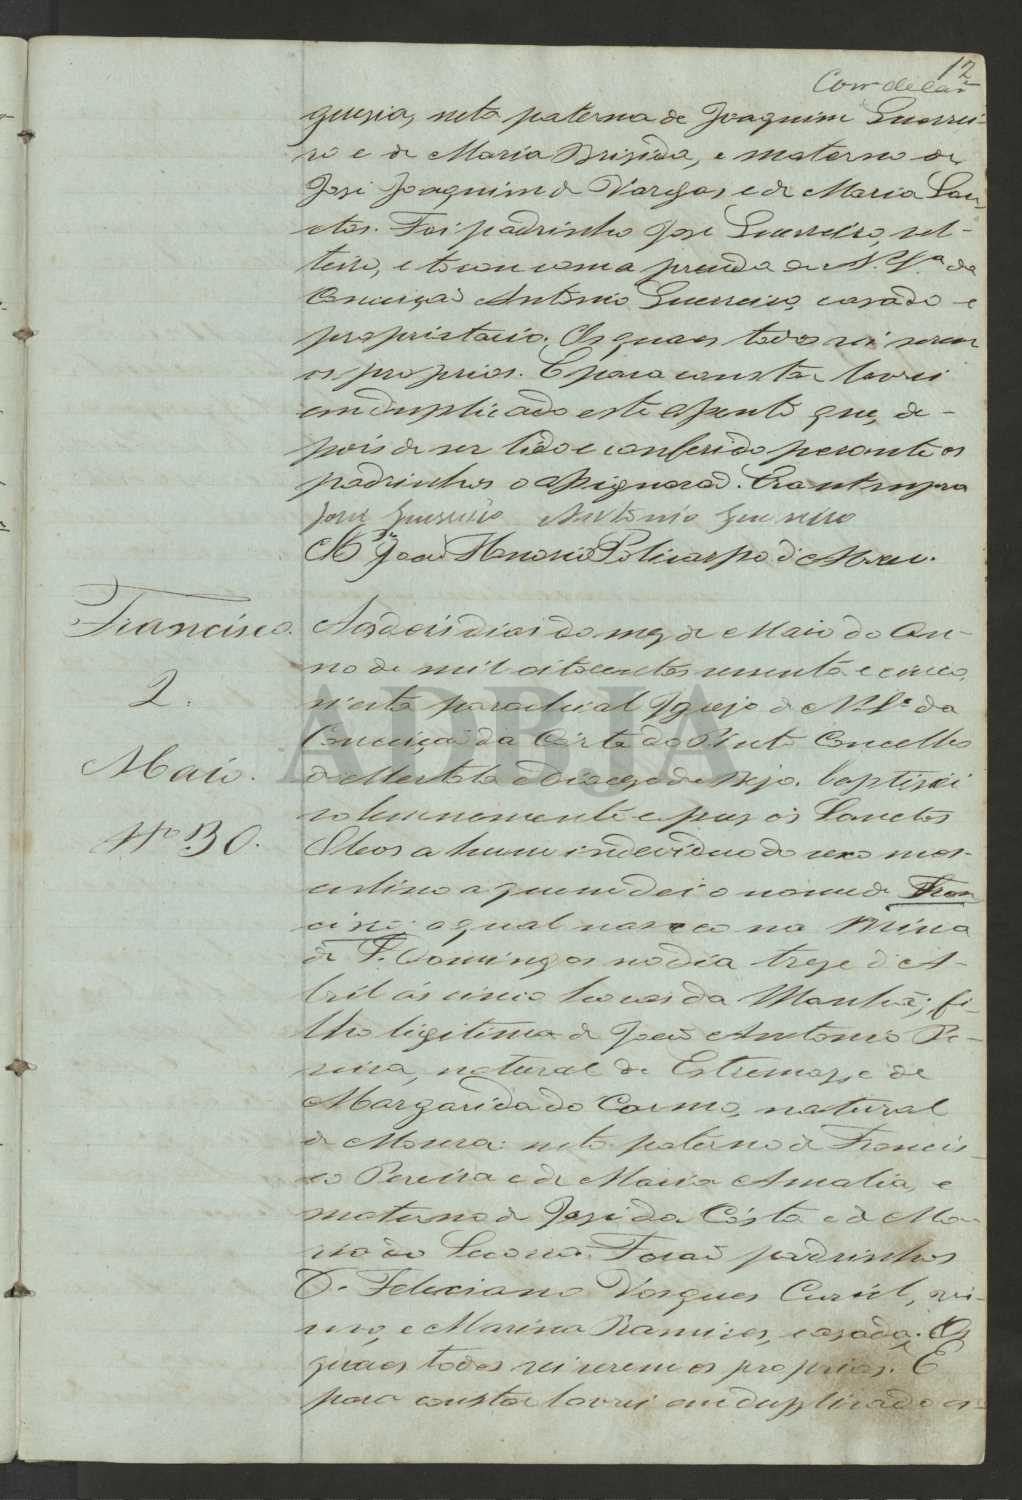 12
guesia, neta paterna de Joaquim Guerrei-
ro e de Maria Brisida, e materno de
José Joaquim de Vargas e de Maria San-
ctos. Foi padrinho José Guerreiro, sol-
teiro, e tocou com a prenda de N. S.ra da
Conceiçaõ Antonio Guerreiro, casado e
proprietario. Os quaes todos sei serem
os proprios. E para constar lavrei
em duplicado este assento que, de-
pois de ser lido e conferido perante os
padrinhos o assignaraõ. Era ut supra
José Guerreiro Antonio Guerreiro
Joaõ Honorio Policarpo d'Abreu.
Francisco.
2.
Maio.
Nº 30.
Aos dois dias do mez de Maio do An-
no de mil oitocentos sessenta e cinco,
n'esta parochial Igreja de N. S.ra da
Conceiçaõ da Côrte do Pinto Concelho
de Mertola e Diocese de Beja. baptisei
solemnemente e puz os Sanctos
Oleos a hum individuo do sexo mas-
culino a quem dei o nome de Fran
cisco o qual nasceo na Mina
de S. Domingos no dia treze d'A-
bril ás cinco horas da Manhã; fi-
lho legitimo de Joaõ Antonio Pe-
reira, natural de Estremoz, e de
Margarida do Carmo, natural
de Moura: neto paterno de Francis-
co Pereira e de Maria Amalia, e
materno de José da Costa e de Ma-
ria do Foraõ padrinhos
D. Feleciano Vasques Curiel, vi-
uvo, e Marina Ramires, casada. Os
quaes todos sei serem os proprios. E
para constar lavrei em duplicado es-
ADBJA